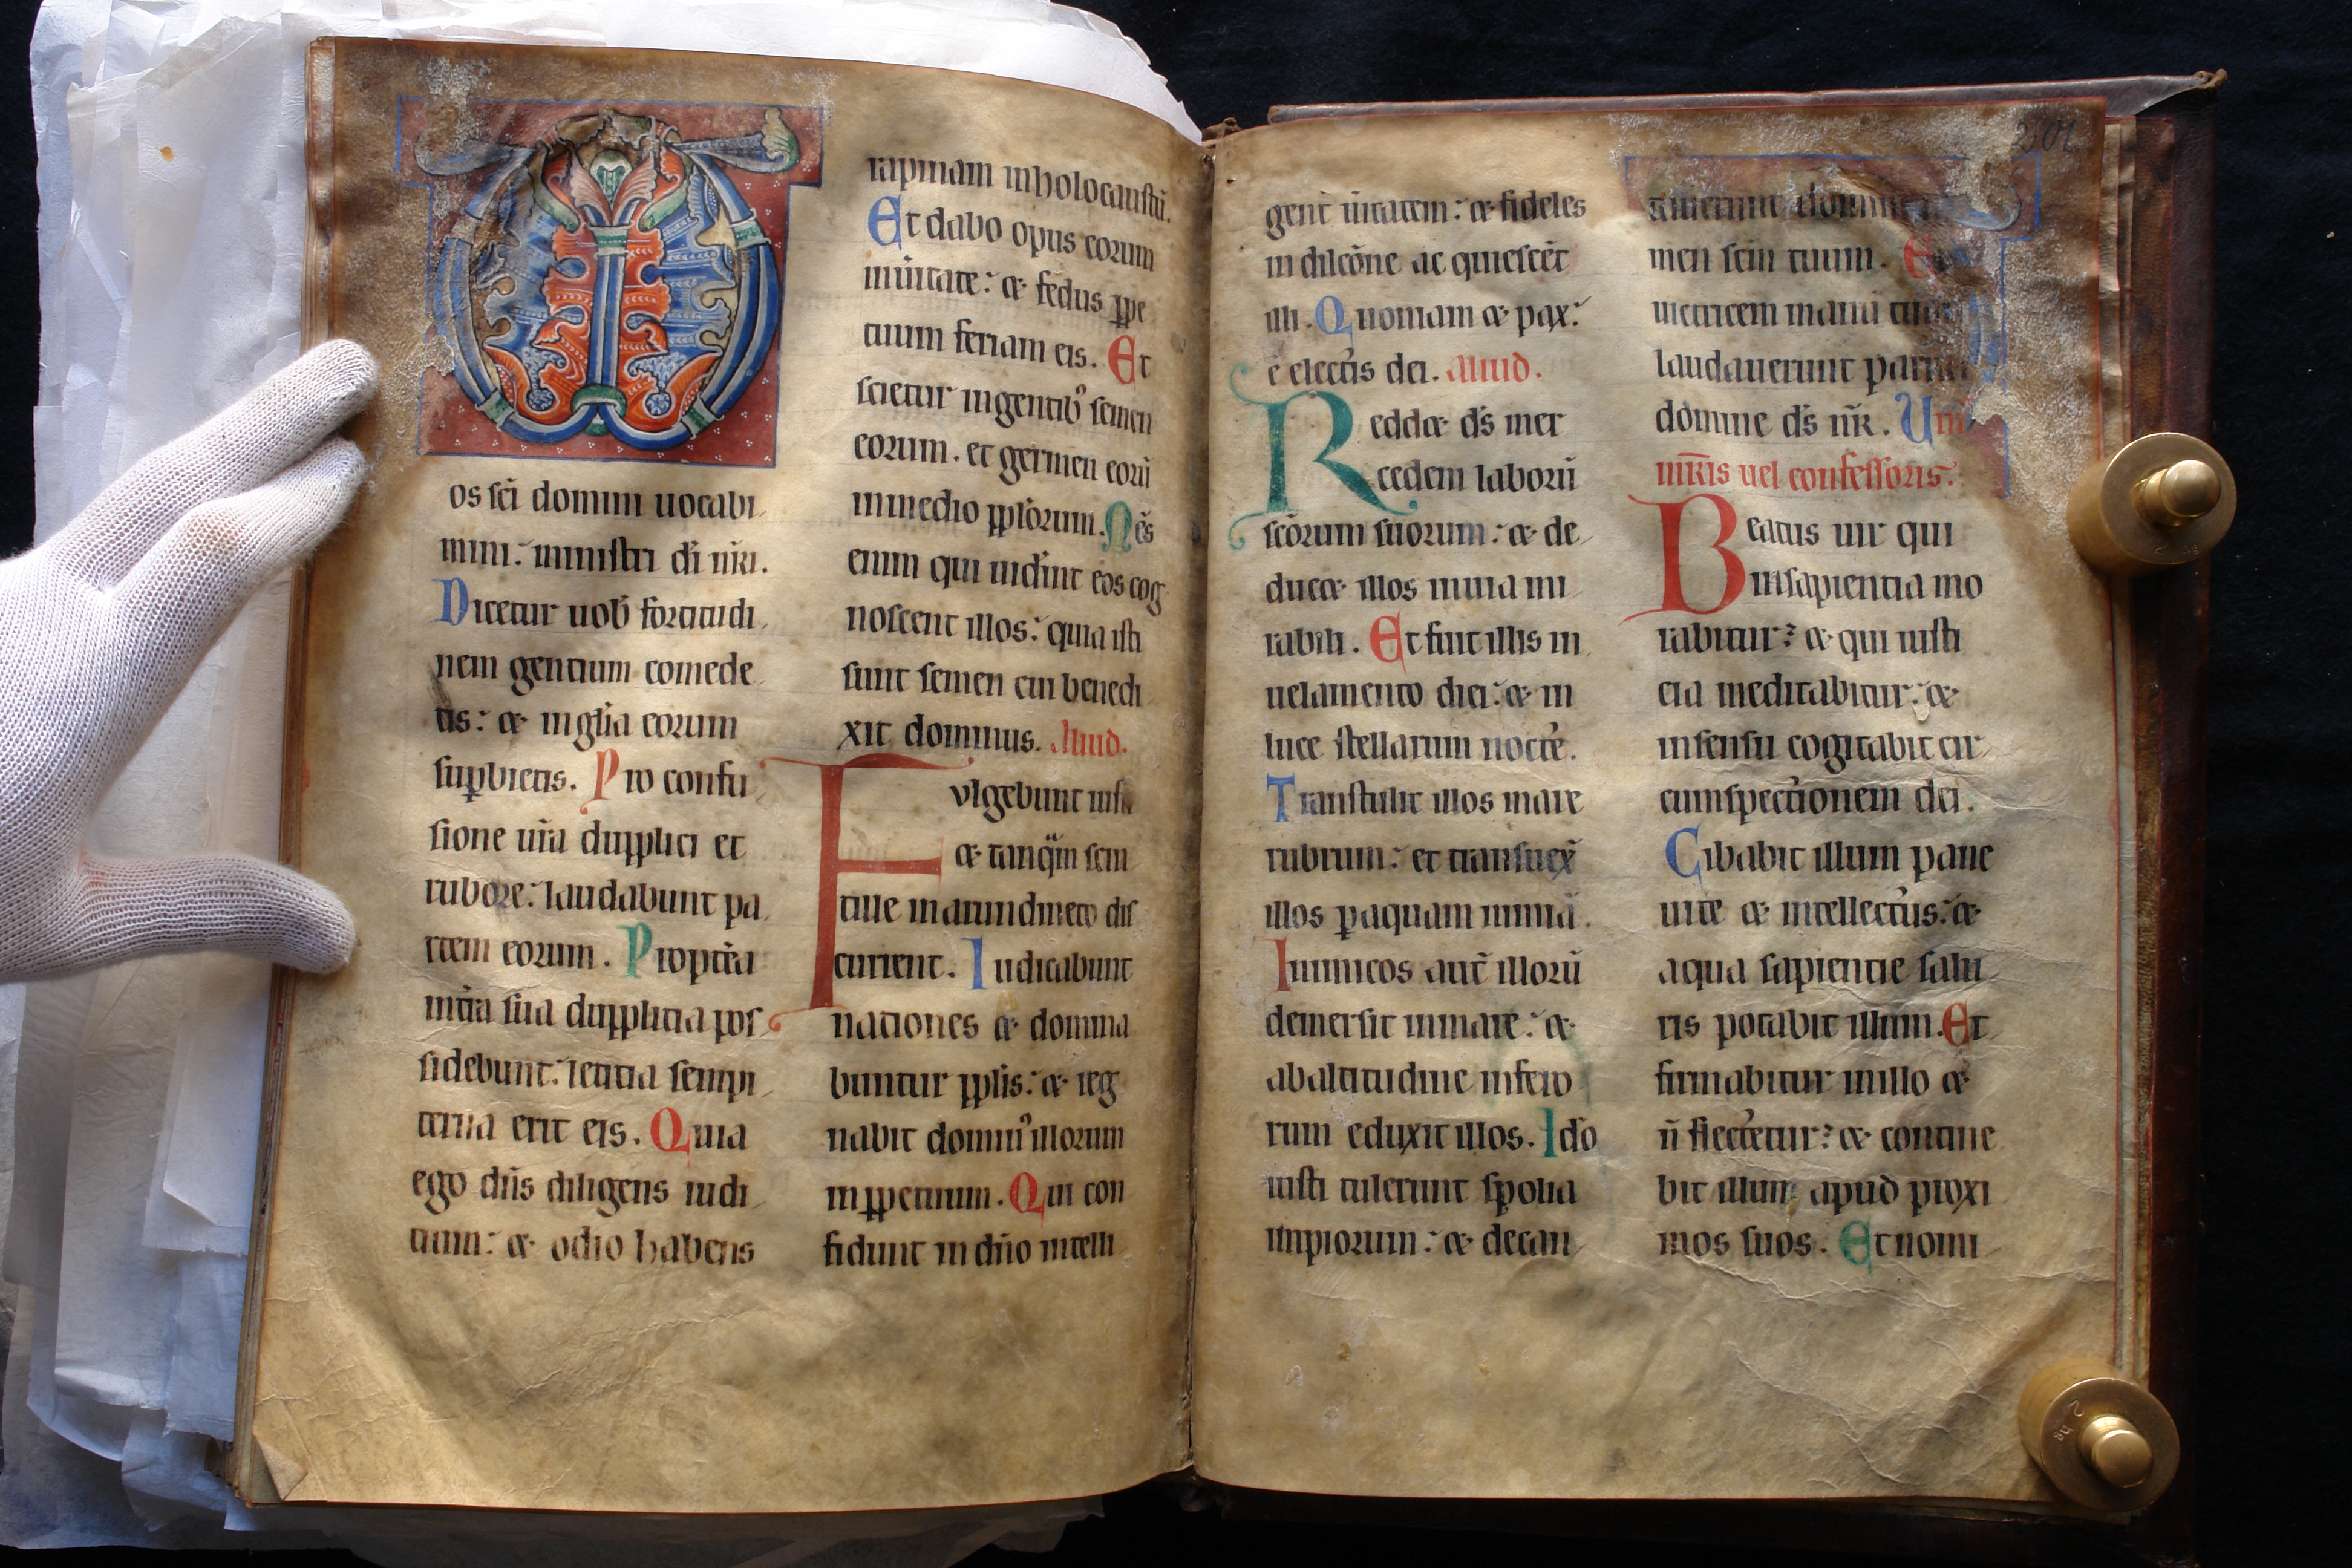 os sc̄i domini uocabi
mini: ministri dī nr̄i.
Dicetur uob̄ fortitudi
nem gentium comede
tis: & inglīa eorum
sup̱bietis. Pro confu
sione ur̄a dupplici et
rubore: laudabunt pa
rtem eorum. Propt̄ea
int̄ra sua dupplicia pos
sidebunt: letitia sempi
terna erit eis. Quia
ego dn̄s diligens iudi
tium: & odio habens
rapinam inholocaustū.
Et dabo opus eorum
inūitate: & fedus p̱pe
tuum feriam eis. Et
scietur ingentib᾿ semen
eorum. et germen eorū
inmedio pplōrum. Om̄s
enim qui uid̄int eos cog
noscent illos: quia isti
sunt semen cui benedi
xit dominus. Aliud.
Fvlgebunt iusti
& tanq̈m scin
tille inarundineto dis
current. Iudicabunt
nationes & domina
buntur pplis: & reg
nabit domin᾿ illorum
inp̱petuum. Qui con
fidunt in dn̄o intelli
2501
gent ūitatem: & fideles
in dilc̄one ac quiescēt
illi. Quoniam & pax:
ē electis dei. Aliud.
Reddet ds̄ mer
cedem laborū
sc̄orum suorum: & de
ducet illos inuia mi
rabili. Et fuit illis in
uelamento diei: & in
luce stellarum nocte.
Transtulit illos mare
rubrum: et transuex̄
illos p̱aquam nimiā.
Inimicos aut̄ illorū
demersit inmare: &
abaltitudine infero
rum eduxit illos. Ido
iusti tulerunt spolia
impiorum: & decan
tauerunt domine
men sc̄m tuum. Et
uictricem manū tuam
laudauerunt pariter
domine ds̄ nr̄. Uni᾿
mr̄is uel confessoris.
Beatus uir qui
insapientia mo
rabitur: & qui iusti
cia meditabitur: &
insensu cogitabit cir
cumspectionem dei.
Cibabit illum pane
uite & intellectus: &
aqua sapientie salu
ris potabit illum. Et
firmabitur inillo &
n̄ flectetur: & contine
bit illum apud proxi
mos suos. Et nomi